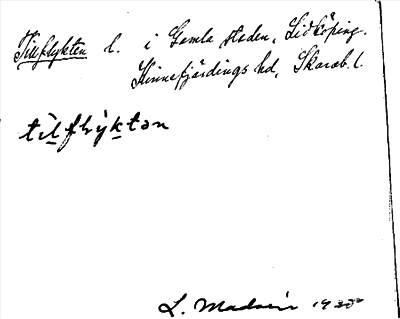 Tillflykten l. i Gamla staden, Lidköping.
Kinnefjärdings hd, Skarab. l.
tilflyktən
L. Madsén 1930